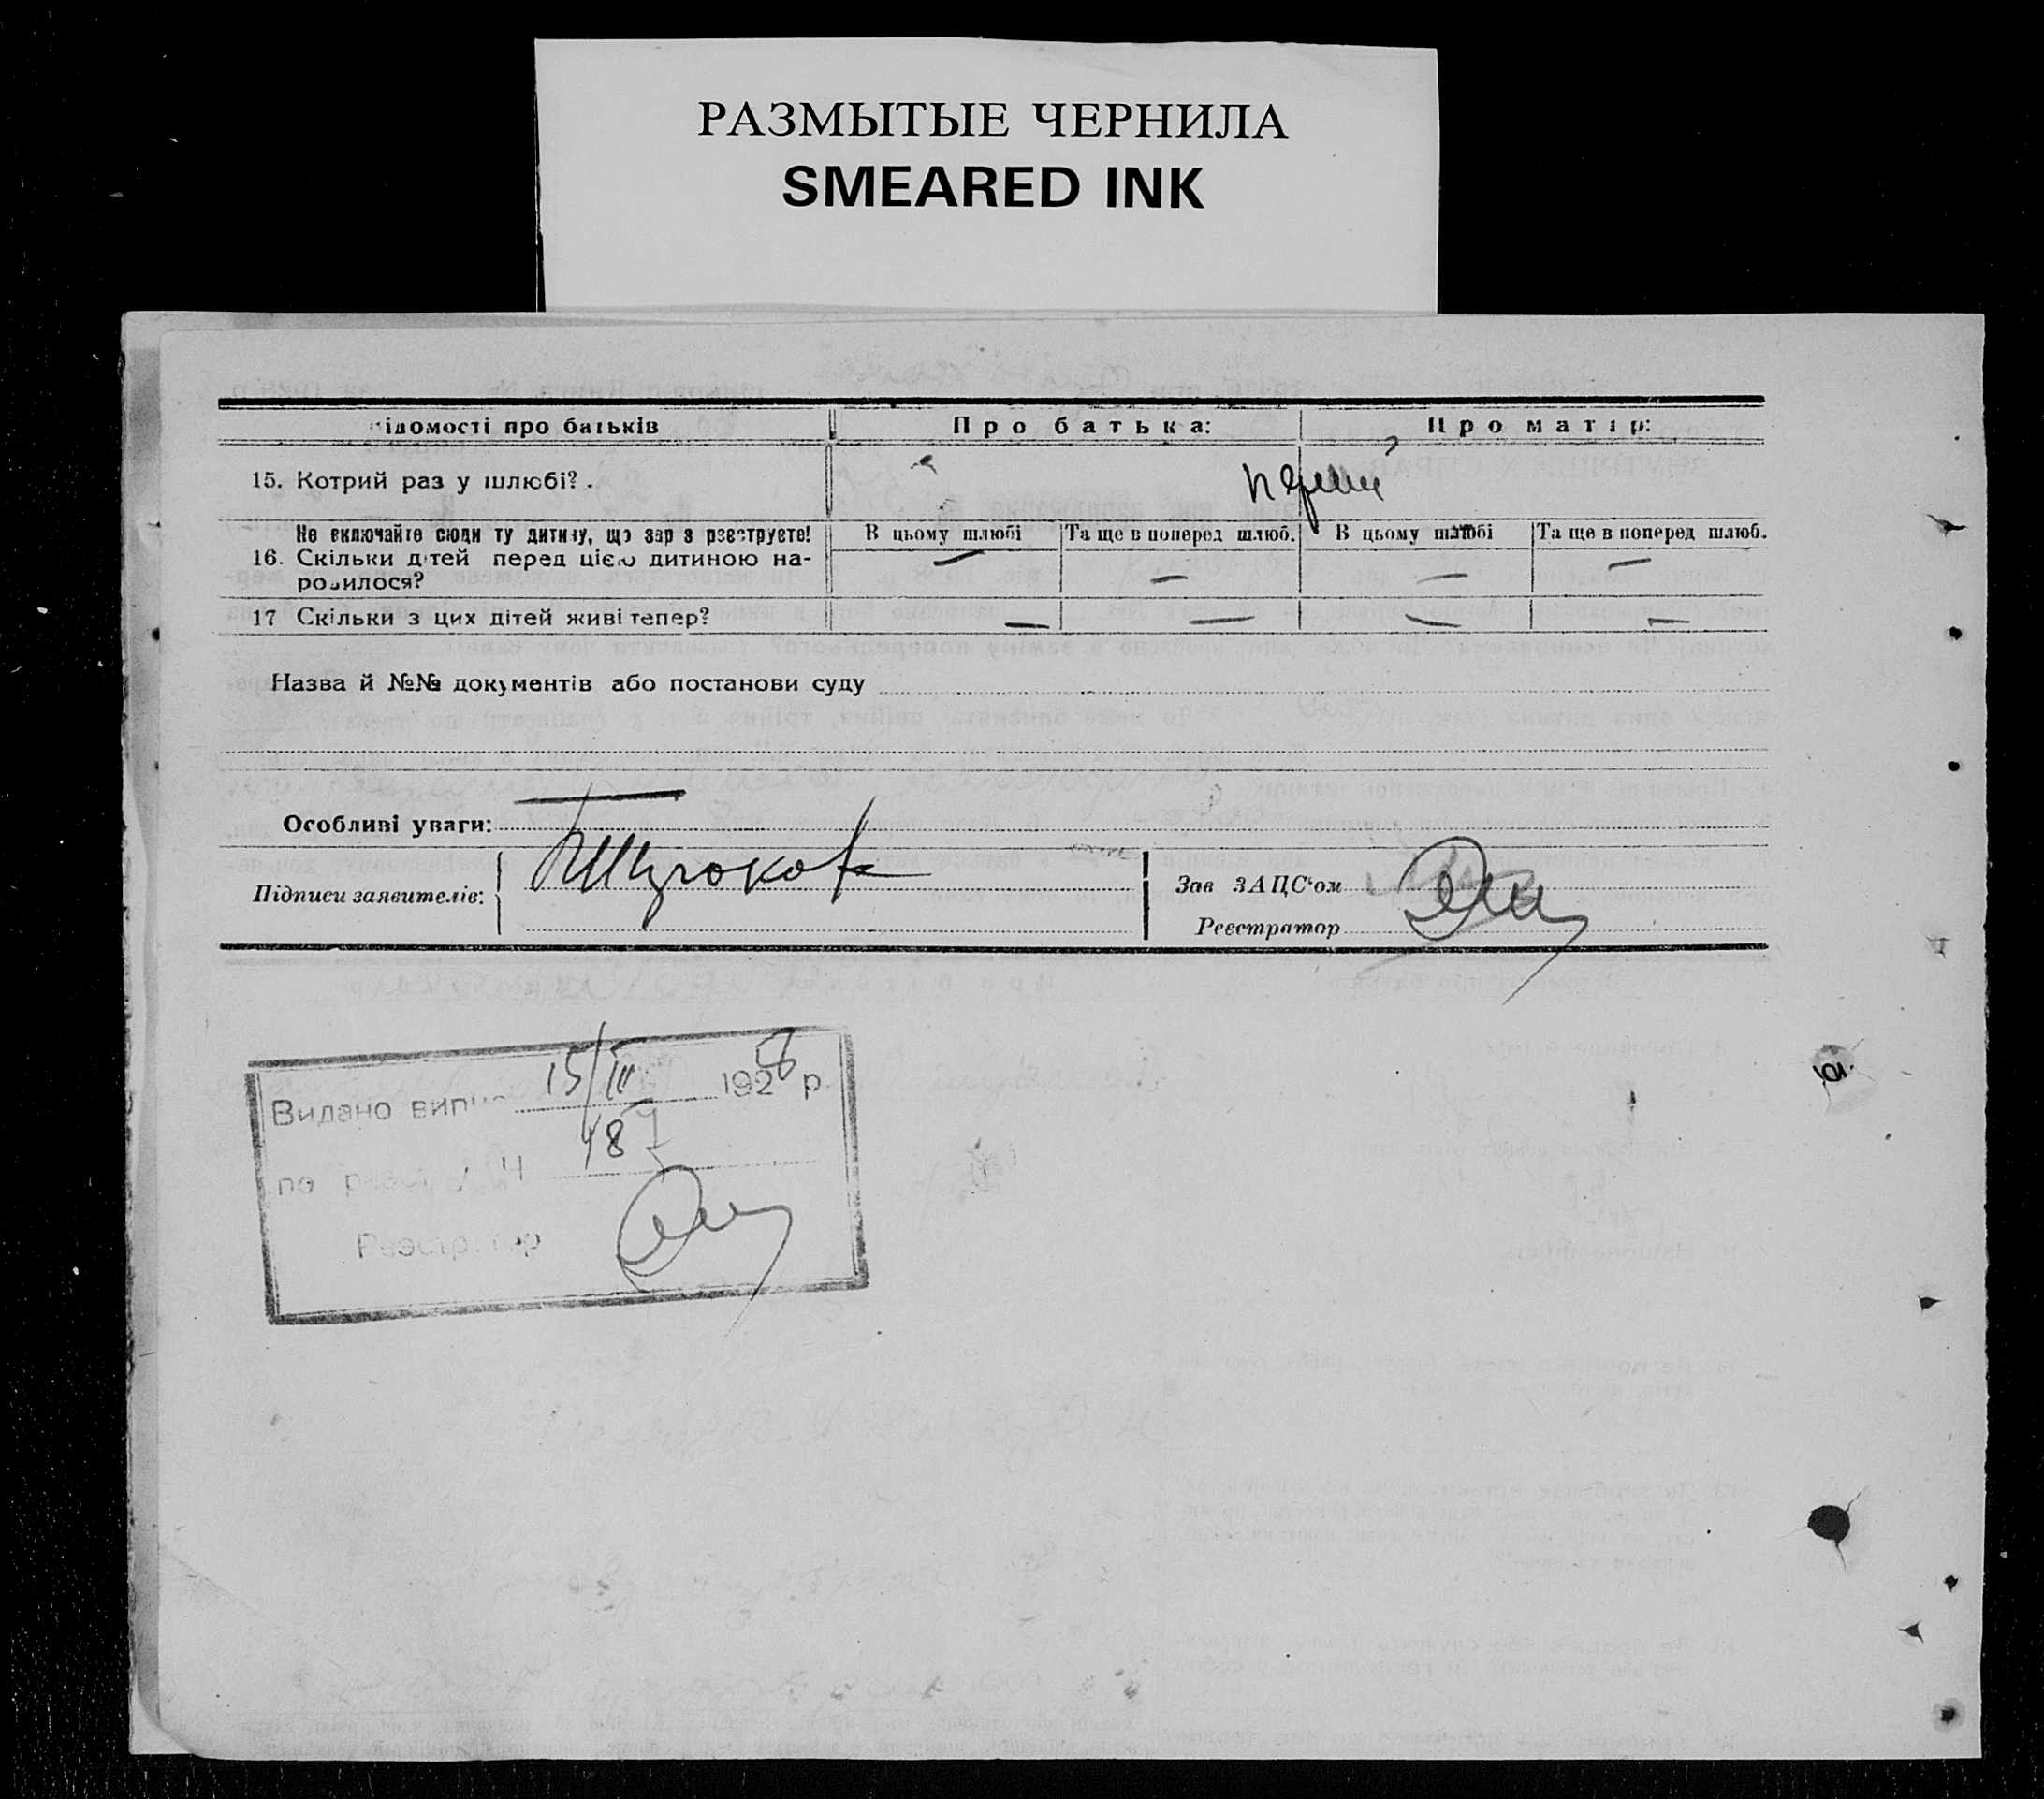 РАЗМЫТЫЕ ЧЕРНИЛА
SMEARED INK
ідомості про батьків Про батька: Про матір:
15. Котрий раз у шлюбі? .
Не включайте сюди ту дитину, що зараз реєструєте! В цьому шлюбі Та ще в поперед шлюб. В цьому шлюбі Та ще в поперед шлюб.
16. Скільки дітей перед цією дитиною на- — — — —
родилося?
17 Скільки з цих дітей живі тепер? — — — —
Назва й №№ документів або постанови суду
Особливі уваги: —
Підписи заявителів:
Зав ЗАЦС'ом
Реєстратор
15/III
Видано випис 1926 р.
187
по
Реєстратор